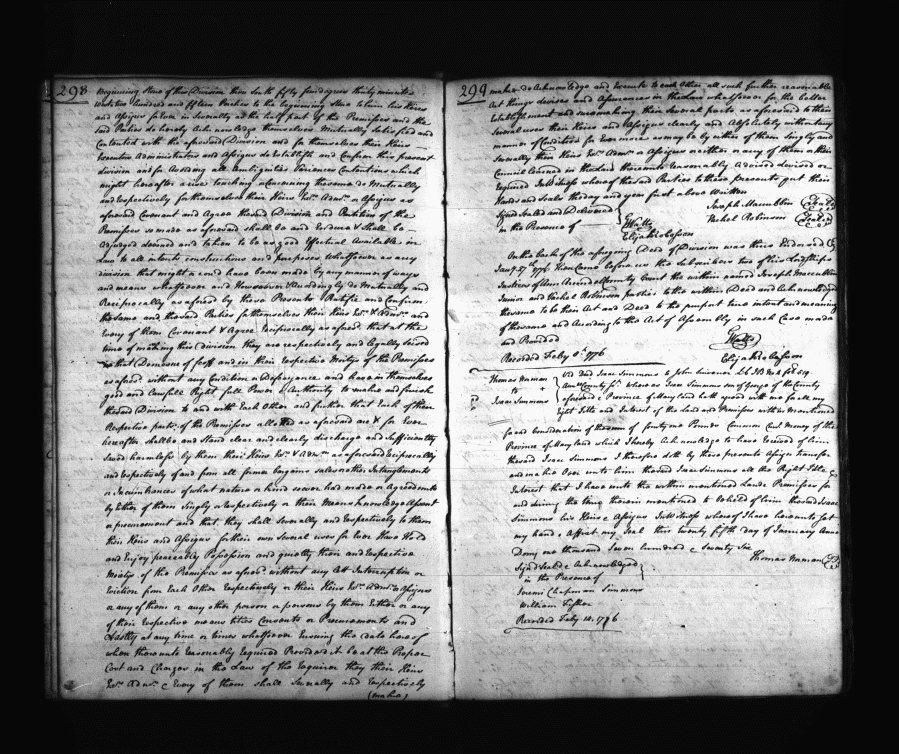 298
Beginning Stone of this Division then South fifty five degrees thirty minutes
West two hundred and fifteen Perches to the beginning Stone to him his Heirs
and Assigns future in Severalty as the half part of the Premisses and the
said Parties do hereby Acknowledge themselves Mutually Satisfied and
Contented with the aforesaid Division and for themselves their Heirs
Executors Administrators and Assigns do Establish and Confirm this present
division and for Avoiding all Ambiguities Variences Contentions which
might hereafter arise touching or concerning the same do Mutually
and respectively for themselves their Heirs Exrs Admrs or Assigns as
aforesaid Covenant and Agree the said Division and Partition of the
Premisses so made as aforesaid shall be and Endure & Shall be
Adjudged deemed and taken to be as good Effectual Available in
Law to all intents constructions and purposes whatsoever as any
division that might or could have been made by any manner of ways
and means whatsoever and Howsoever Accordingly do Mutually and
Reciprocally as aforesaid by these Presents Ratifie and Confirm
the same and the said Parties for themselves their Heirs Exrs & Admrs and
Every of them Covenant & Agree reciprocally as aforesaid that at the
time of making this division they are respectively and legally Seized
in their Demesne of fee and in their respective Moitys of the Premisses
as aforesaid without any Condition or Defeazance and have in themselves
good and Lawfull Right full Power & Authority to make and finish
the said Division to and with Each Other and further that Each of their
Respective parts of the Premisses allotted as aforesaid are & for Ever
hereafter shall be and Stand clear and clearly discharge and Sufficiently
Saved harmless by them their Heirs Exrs & Admrs as aforesaid Reciprocally
and respectively of and from all former bargains sales or other Intanglements
or Incumbrances of what nature or kind soever had made or Agreed unto
by Either of them Singly or respectively or their Means knowledge Assent
or procurement and that they shall Severally and respectively to them
their Heirs and Assigns for their own Several uses for Ever Have Hold
and Enjoy peaceably Possession and quietly their and respective
Moitys of the Premisses as aforesd without any Lett Interruption or
Eviction from Each Other respectively or their Heirs Exrs Admrs or Assigns
or any of them or any other person or persons by them Either or any
of their respective means titles Consents or Procurements and
Lastly at any time or times whatsoever Ensuing the date hereof
when thereunto reasonably required Provided it be at the Proper
Cost and Charges in the Law of the Requirer they their Heirs
Exrs Admrs & Every of them shall Severally and respectively
(make)
299
make do Acknowledge and Execute to each Other all such further reasonable
Act things devises and Assurances in the Law whatsoever for the better
Establishment and sure making their Several parts as aforesaid to their
Several uses their Heirs and Assigns clearly and Absolutely without any
manner of Condition for Ever more as may be by either of them Singly and
Severally their Heirs Exrs Admrs or Assigns or either or any of them or their
Council learned in the Law thereunto reasonably Advised devised or
required In Witness whereof the said Parties to these presents put their
Hands and Seals the day and year first above Written
Signed Sealed and Delivered
in the Presence of
Joseph Maccubbin (Seal)
Vachel Robinson (Seal)
J Watts
Elijah Robosson
On the back of this aforegoing Deed of Division was thus Endorsed Viz
Jany 27th 1776 Then Came before us the Subscribers two of his Lordships
Justices of Ann Arundel County Court the within named Joseph Maccubbin
Junior and Vachel Robinson parties to the within Deed and Acknowledged
the same to be their Act and Deed to the purport true intent and meaning
of the same and According to the Act of Assembly in such Case made
and Provided
J Watts
Elijah Robosson
Recorded Feby 8th 1776
Thomas Inman
to
Isaac Simmons
aforesd & Province of Maryland hath agreed with me for all my
right Title and Interest of the Land and Premisses within Mentioned
for and Consideration of the sum of forty one Pounds Common Curt Money of the
Province of Maryland which I hereby Acknowledge to have received of him
the said Isaac Simmons I therefore doth by these presents Assign Transfer
and make Over unto him the said Isaac Simmons all the Right Title &
Interest that I have unto the within mentioned Lands Premisses for
and during the time therein mentioned to behold of him the said Isaac
Simmons his Heirs & Assigns In Witness whereof I have hereunto Set
my hand & affixt my Seal this twenty fifth day of January Anno
Domy one thousand Seven hundred & Seventy Six
Thomas Inman
Signd Seald & Acknowledged
in the Presence of
Jeremi Chapman Simmons
William Fisher
Recorded Feby 10. 1776